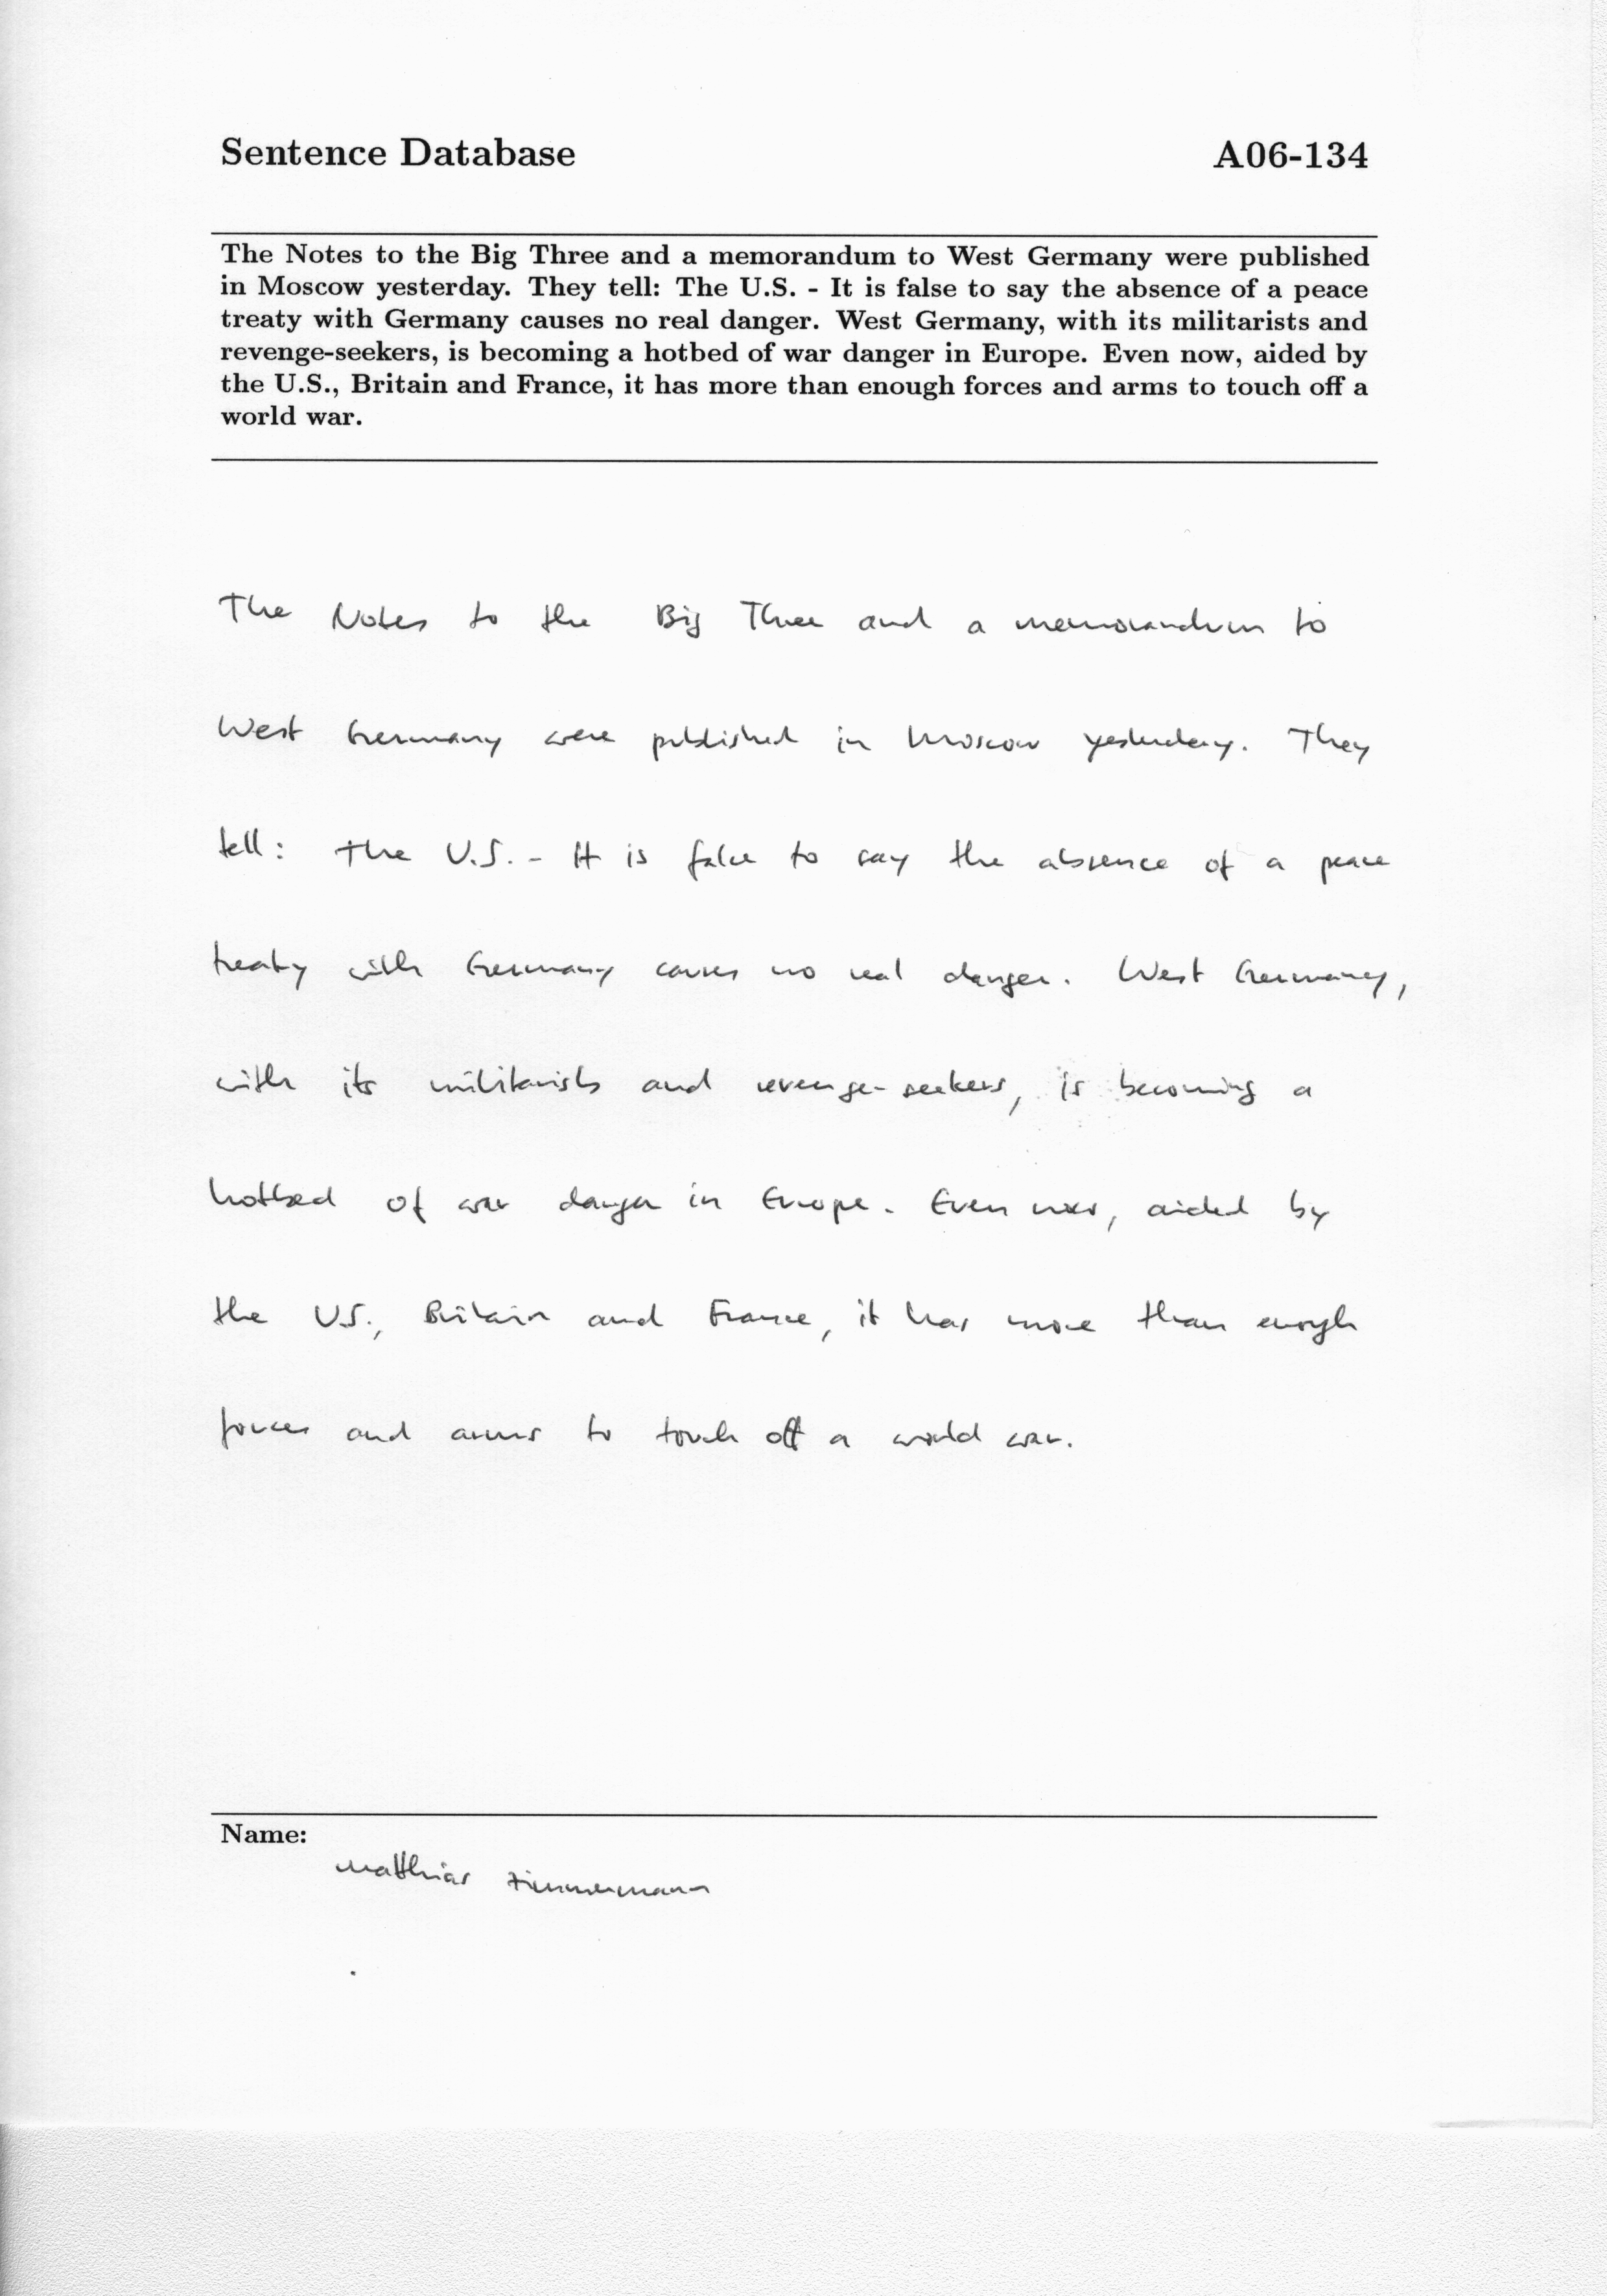 Sentence Database A06-134
The Notes to the Big Three and a memorandum to West Germany were published
in Moscow yesterday. They tell: The U.S. - It is false to say the absence of a peace
treaty with Germany causes no real danger. West Germany, with its militarists and
revenge-seekers, is becoming a hotbed of war danger in Europe. Even now, aided by
the U.S., Britain and France, it has more than enough forces and arms to touch off a
world war.
The Notes to the Big Three and a memorandum to
West Germany were published in Moscow yesterday. They
tell: The U.S. - It is false to say the absence of a peace
treaty with Germany causes no real danger. West Germany,
with its militarists and revenge-seekers, is becoming a
hotbed of war danger in Europe. Even now, aided by
the U.S., Britain and France, it has more than enough
forces and arms to touch off a world war.
Name:
Matthias Zimmermann